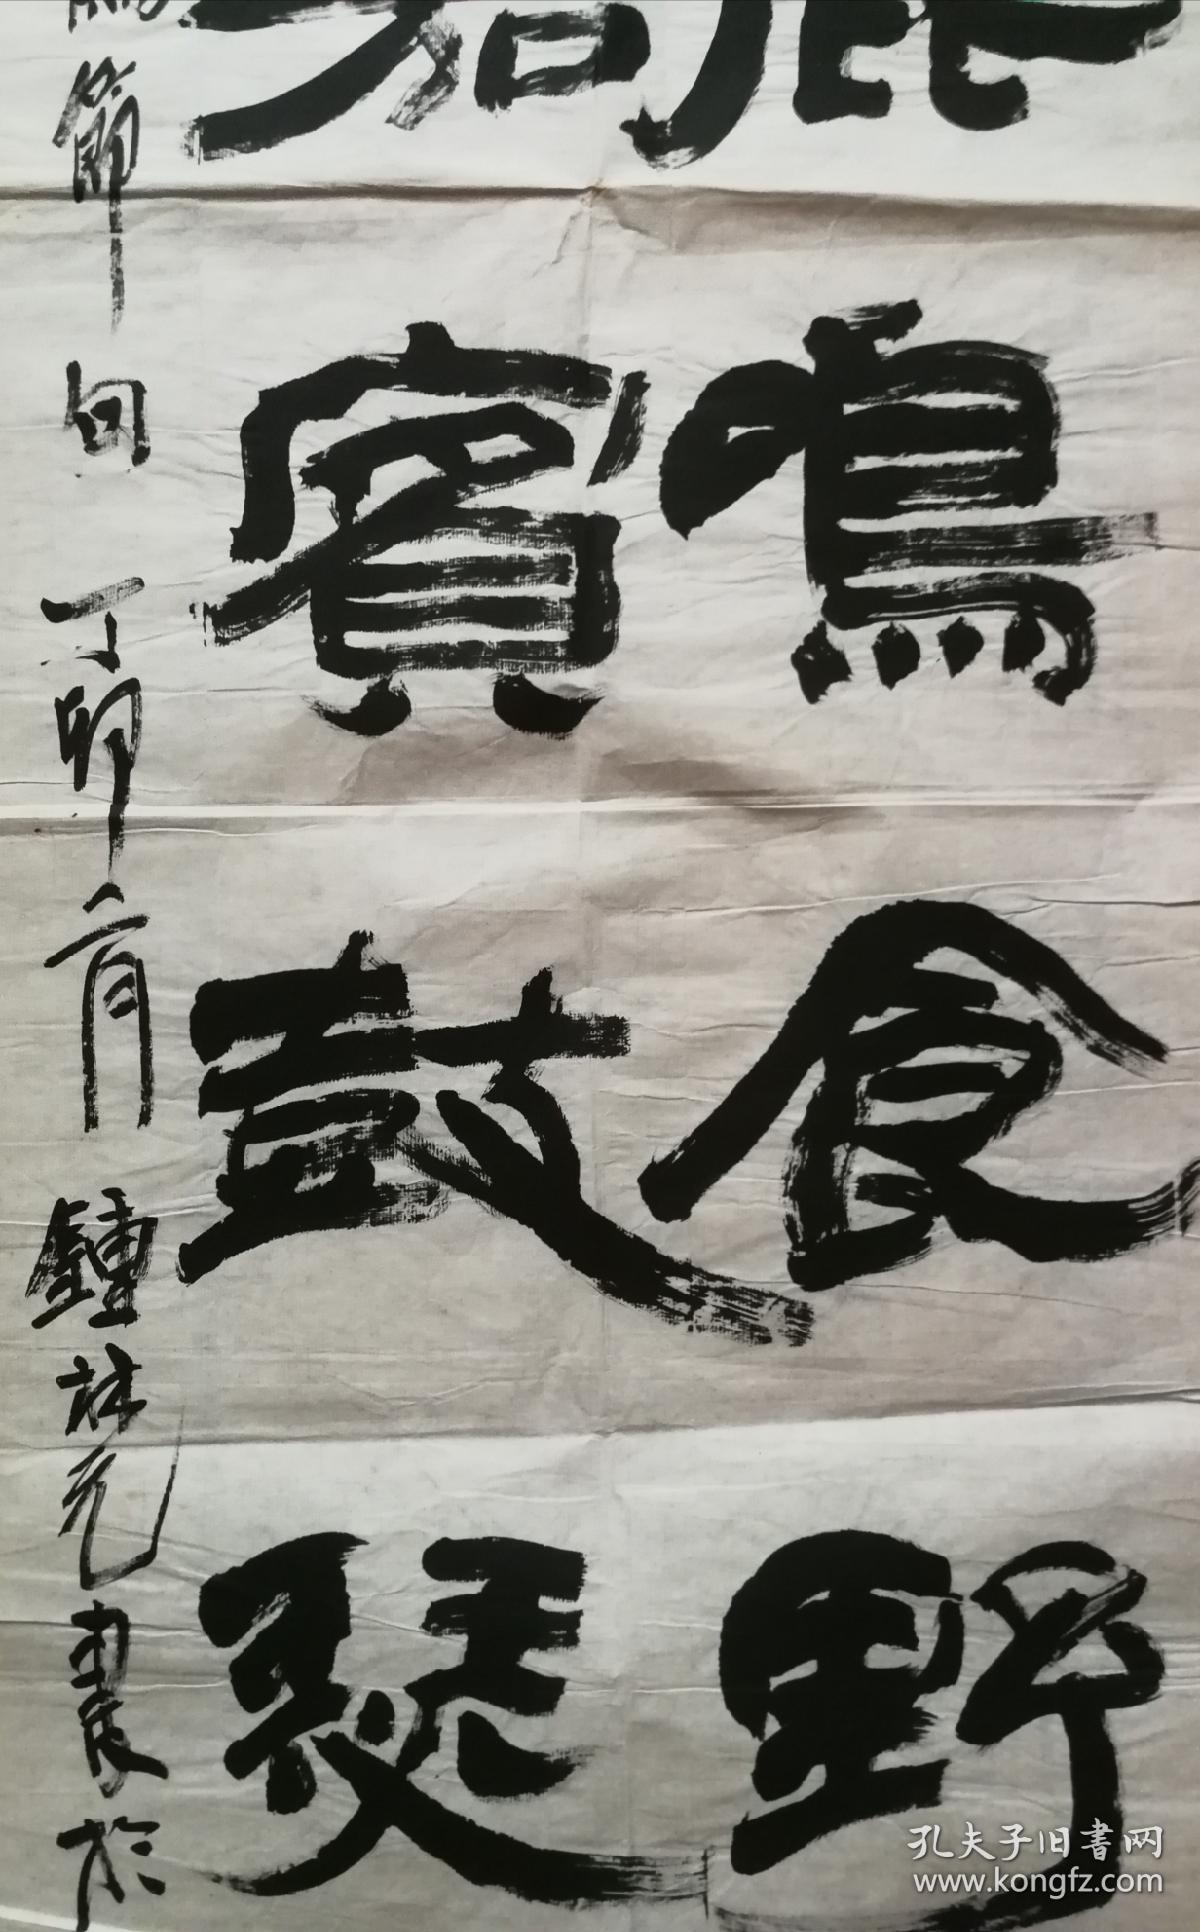 鹿鳴食野
賓鼓瑟
節句 丁卯 月 鍾林元書於
孔夫子旧書网
www.kongfz.com